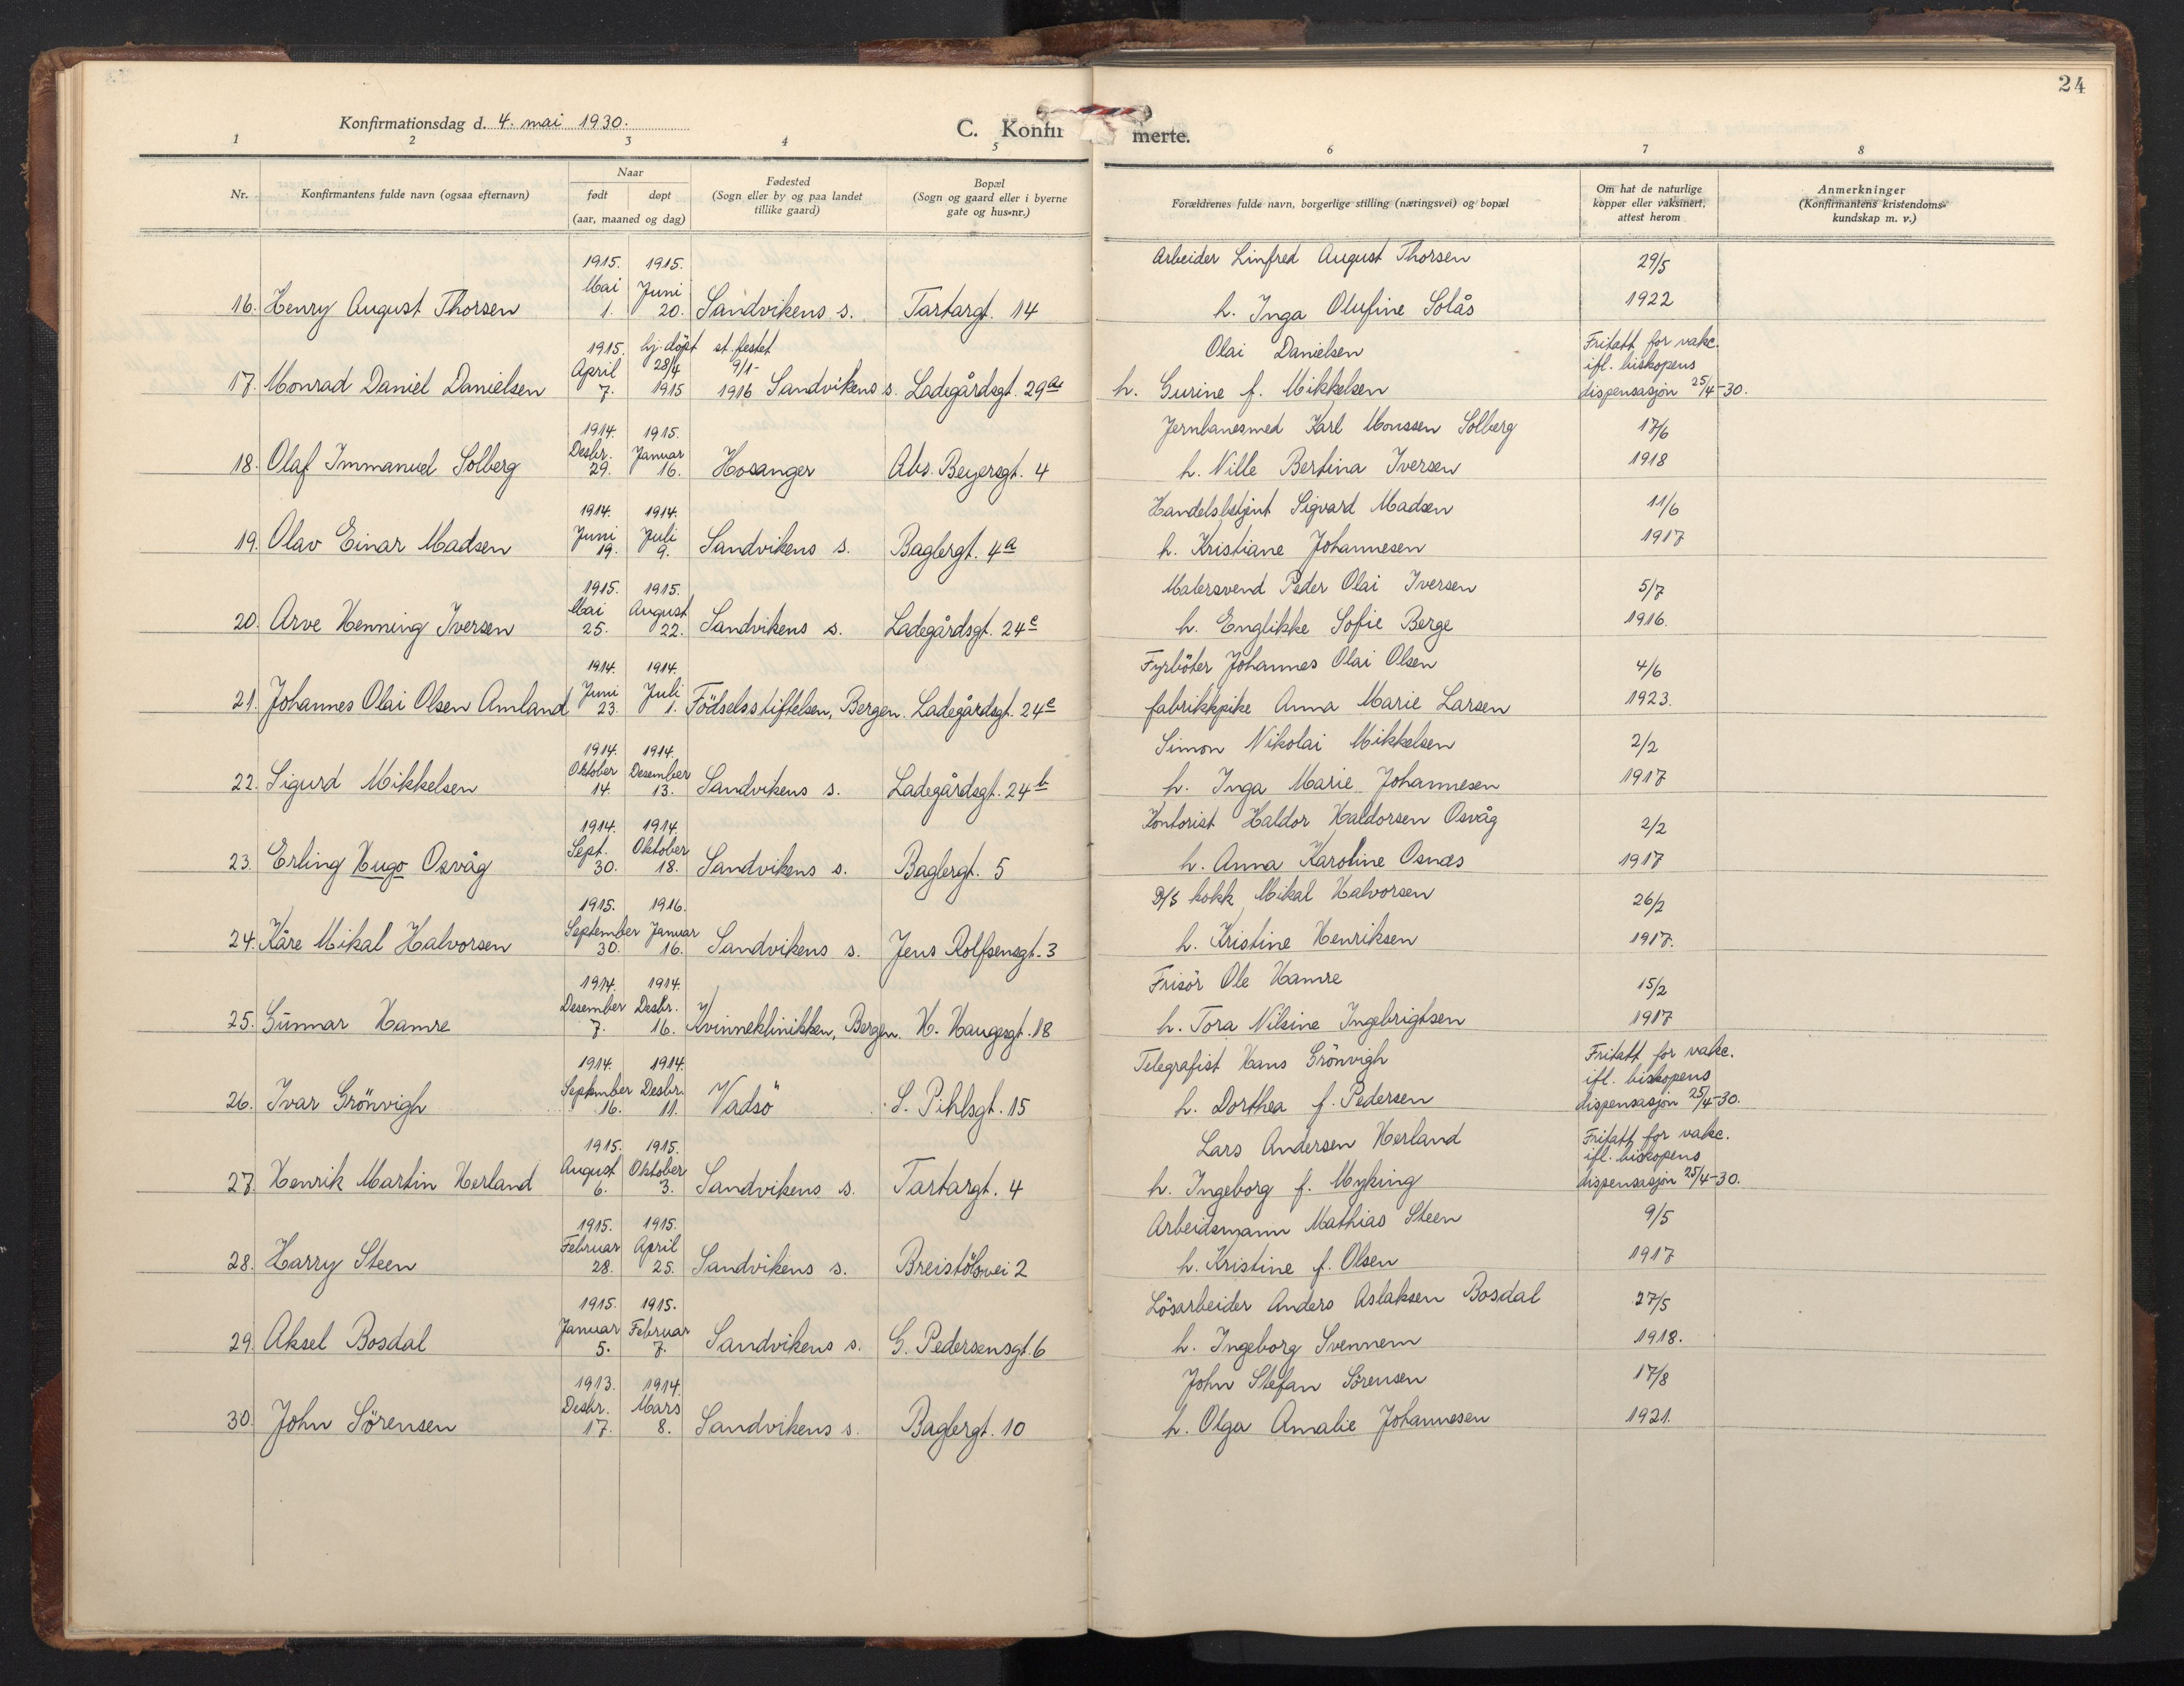 24
Konfirmationsdag d. 4. mai 1930.
C. Konfirmerte.
1 2 3 4 5 6 7 8
Nr.
Konfirmantens fulde navn (ogsaa efternavn)
Naar
født døpt
(aar, maaned og dag)
Fødested
(Sogn eller by og paa landet
tillike gaard)
Bopæl
(Sogn og gaard eller i byerne
gate og hus-nr.)
Forældrenes fulde navn, borgerlige stilling (næringsvei) og bopæl
Om hat de naturlige
kopper eller vaksinert,
attest herom
Anmerkninger
(Konfirmantens kristendoms-
kundskap m. v.)
1915. 1915. Arbeider Linfred August Thorsen 29/5
Mai Juni
16. Henry August Thorsen 1. 20. Sandvikens s. Tartargt. 14 h. Inga Olufine Solås 1922
1915. hj.døpt st.festet Olai Danielsen Fritatt for vakc.
April 28/4 9/1- ifl. biskopens
17. Monrad Daniel Danielsen 7. 1915 1916 Sandvikens s. Ladegårdsgt. 29a h. Gurine f. Mikkelsen dispensasjon 25/4-30.
1914. 1915. Jernbanesmed Karl Monssen Solberg 17/6
Desbr. Januar
18. Olaf Immanuel Solberg 29. 16. Hosanger Abs. Beyersgt. 4 h. Nille Bertina Iversen 1918
1914. 1914. Handelsbetjent Sigvard Madsen 11/6
Juni Juli
19. Olav Einar Madsen 19. 9. Sandvikens s. Baglergt. 4a h. Kristiane Johannesen 1917
1915. 1915. Malersvend Peder Olai Iversen 5/7
Mai August
20. Arve Henning Iversen 25. 22. Sandvikens s. Ladegårdsgt. 24c h. Englikke Sofie Berge 1916.
1914. 1914. Fyrböter Johannes Olai Olsen 4/6
Juni Juli
21. Johannes Olai Olsen Amland 23. 1. Födselsstiftelsen, Bergen. Ladegårdsgt. 24c fabrikkpike Anna Marie Larsen 1923.
1914. 1914. Simon Nikolai Mikkelsen 2/2
Oktober Desember
22. Sigurd Mikkelsen 14. 13. Sandvikens s. Ladegårdsgt. 24b h. Inga Marie Johannesen 1917
1914. 1914. Kontorist Haldor Haldorsen Osvåg 2/2
Sept. Oktober
23. Erling Hugo Osvåg 30. 18. Sandvikens s. Baglergt. 5 h. Anna Karoline Osnæs 1917
1915. 1916. D/S kokk Mikal Halvorsen 26/2
September Januar
24. Kåre Mikal Halvorsen 30. 16. Sandvikens s. Jens Rolfsensgt. 3 h. Kristine Henriksen 1917.
1914. 1914. Frisör Ole Hamre 15/2
Desember Desbr.
25. Gunnar Hamre 7. 16. Kvinneklinikken, Bergen. H. Haugesgt. 18 h. Tora Nilsine Ingebrigtsen 1917
1914. 1914. Telegrafist Hans Grönvigh Fritatt for vakc.
September Desbr. ifl. biskopens
26. Ivar Grönvigh 16. 11. Vadsö S. Pihlsgt. 15 h. Dorthea f. Pedersen dispensasjon 25/4-30.
1915. 1915. Lars Andersen Herland Fritatt for vakc.
August Oktober ifl. biskopens
27. Henrik Martin Herland 6. 3. Sandvikens s. Tartargt. 4 h. Ingeborg f. Myking dispensasjon 25/4-30.
1915. 1915. Arbeidsmann Mathias Steen 9/5
Februar April
28. Harry Steen 28. 25. Sandvikens s. Breistölsvei 2 h. Kristine f. Olsen 1917
1915. 1915. Lösarbeider Anders Aslaksen Bosdal 27/5
Januar Februar
29. Aksel Bosdal 5. 7. Sandvikens s. G. Pedersensgt. 6 h. Ingeborg Svennem 1918.
1913. 1914. John Stefan Sörensen 17/8
Desbr. Mars
30. John Sörensen 17. 8. Sandvikens s. Baglergt. 10 h. Olga Amalie Johannesen 1921.